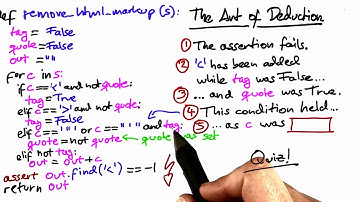 def remove_html_markup(s):
tag = False
quote = False
out = ""
for c in s:
if c=='<' and not quote:
tag = True
elif c=='>' and not quote:
tag = False
elif c=='"' or c=="'" and tag:
quote = not quote
elif not tag:
out = out + c
assert out.find('<') == -1
return out
quote was set
The Art of Deduction
1 The assertion fails.
2 '<' has been added
while tag was False...
3 ...and quote was True.
4 This condition held...
5 ...as c was
Quiz!